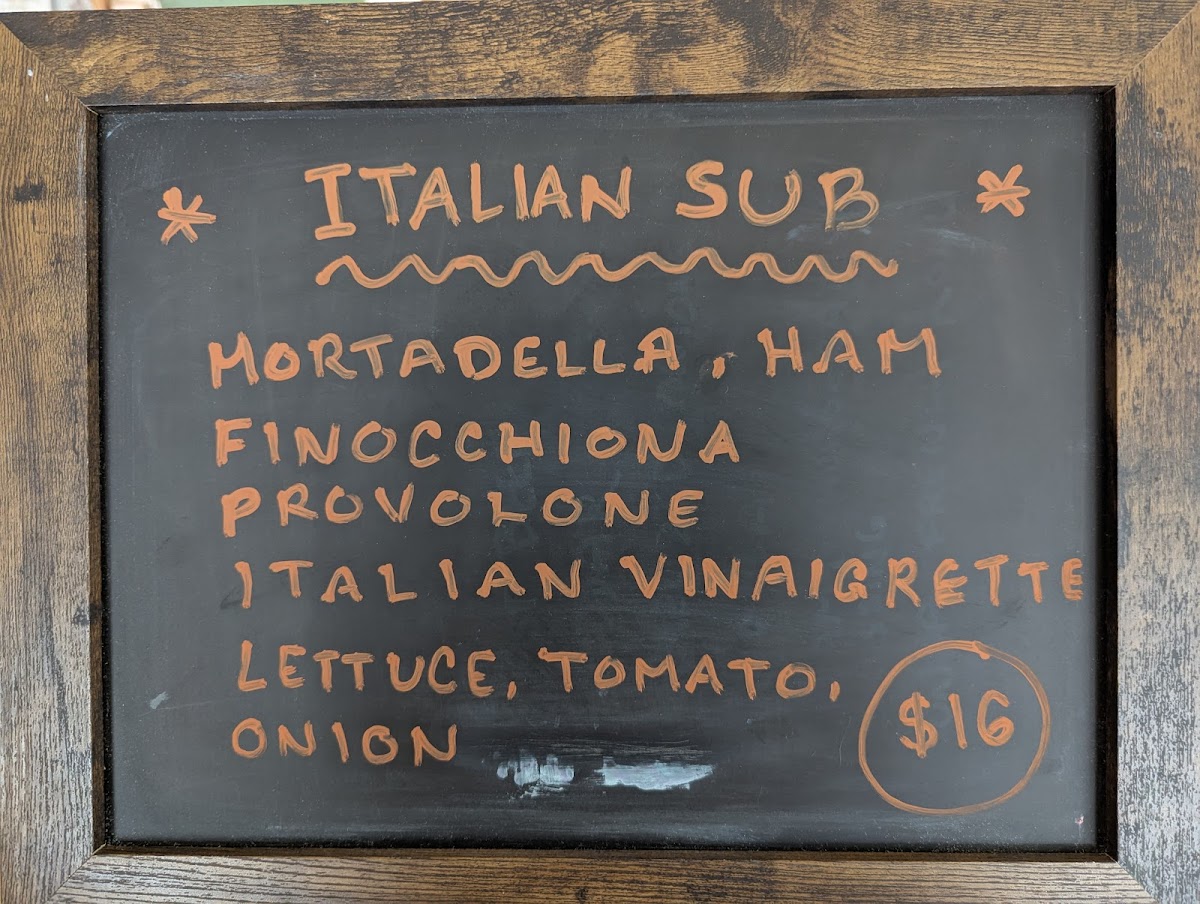 * ITALIAN SUB *
MORTADELLA, HAM
FINOCCHIONA
PROVOLONE
ITALIAN VINAIGRETTE
LETTUCE, TOMATO,
ONION
$16